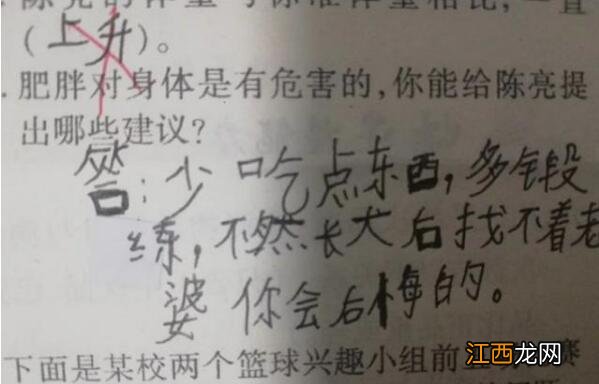 陈亮的体重与标准体重相比,一直
(上升)。
.肥胖对身体是有危害的,你能给陈亮提
出哪些建议?
答:少吃点东西,多锻
练,不然长大后找不着老
婆你会后悔的。
下面是某校两个篮球兴趣小组前
江西龙网